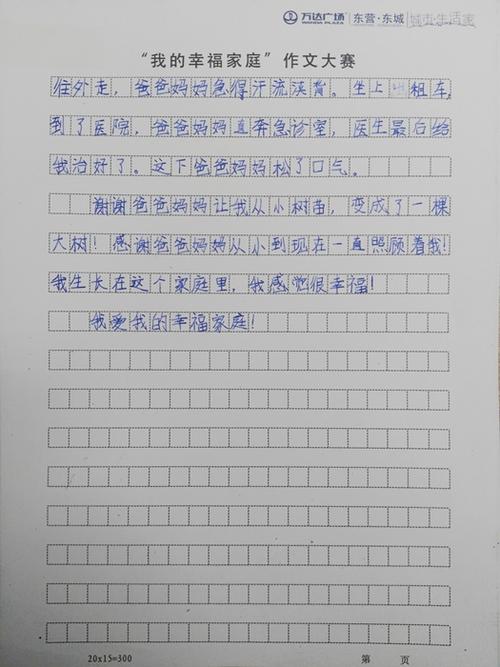 万达广场 WANDA PLAZA 东营·东城 城市·生活家
“我的幸福家庭”作文大赛
往外走，爸爸妈妈急得汗流浃背。坐上出租车，
到了医院，爸爸妈妈直奔急诊室，医生最后给
我治好了。这下爸爸妈妈松了口气。
谢谢爸爸妈妈让我从小树苗，变成了一棵
大树！感谢爸爸妈妈从小到现在一直照顾着我！
我生长在这个家庭里，我感觉很幸福！
我爱我的幸福家庭！
20x15=300 第 页